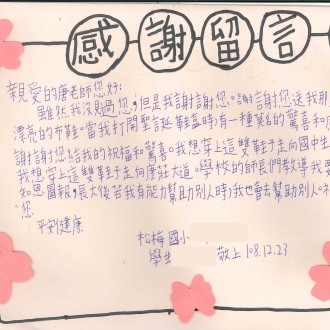 感謝留言
親愛的唐老師您好:
雖然我沒見過您,但是我謝謝您。謝謝您送我那
漂亮的布鞋。當我打開聖誕鞋盒時,有一種莫名的驚喜和
謝謝您給我的祝福和驚喜。我想穿上這雙鞋子走向國中生
我想穿上這雙鞋子走向康莊大道。學校的師長們教導我要
知恩圖報,長大後若我有能力幫助別人時,我也會去幫助別人。祝
您
平安健康
松梅國小
學生
敬上108.12.23